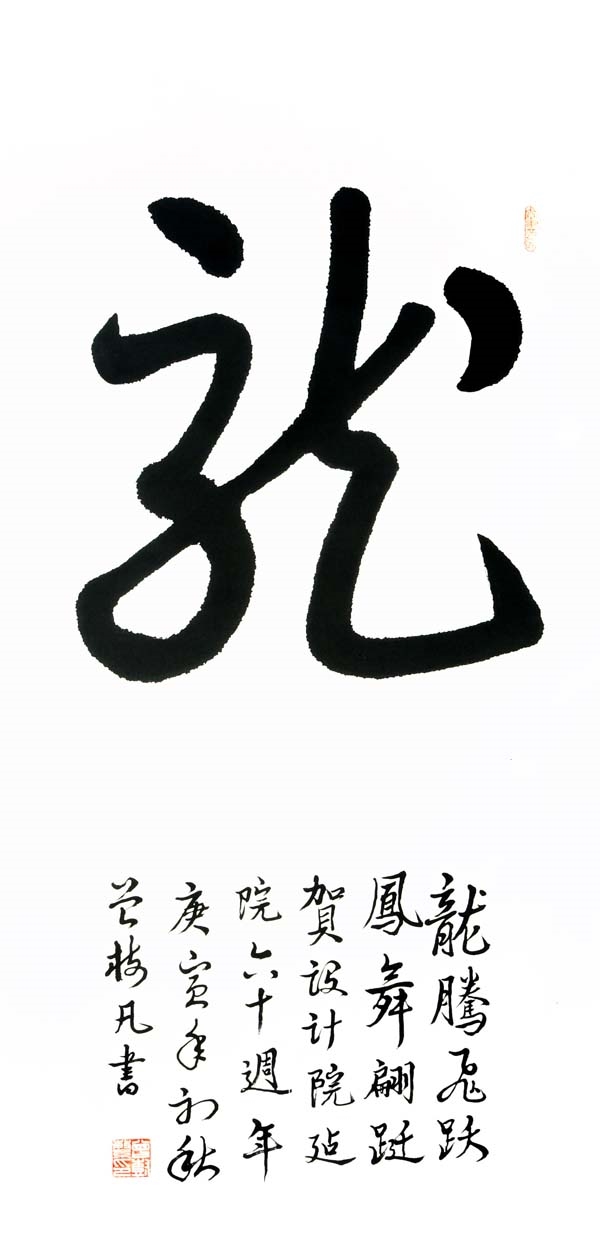 龍
龍騰飛跃
鳳舞翩跹
賀設計院建
院六十週年
庚寅年初秋
凡書